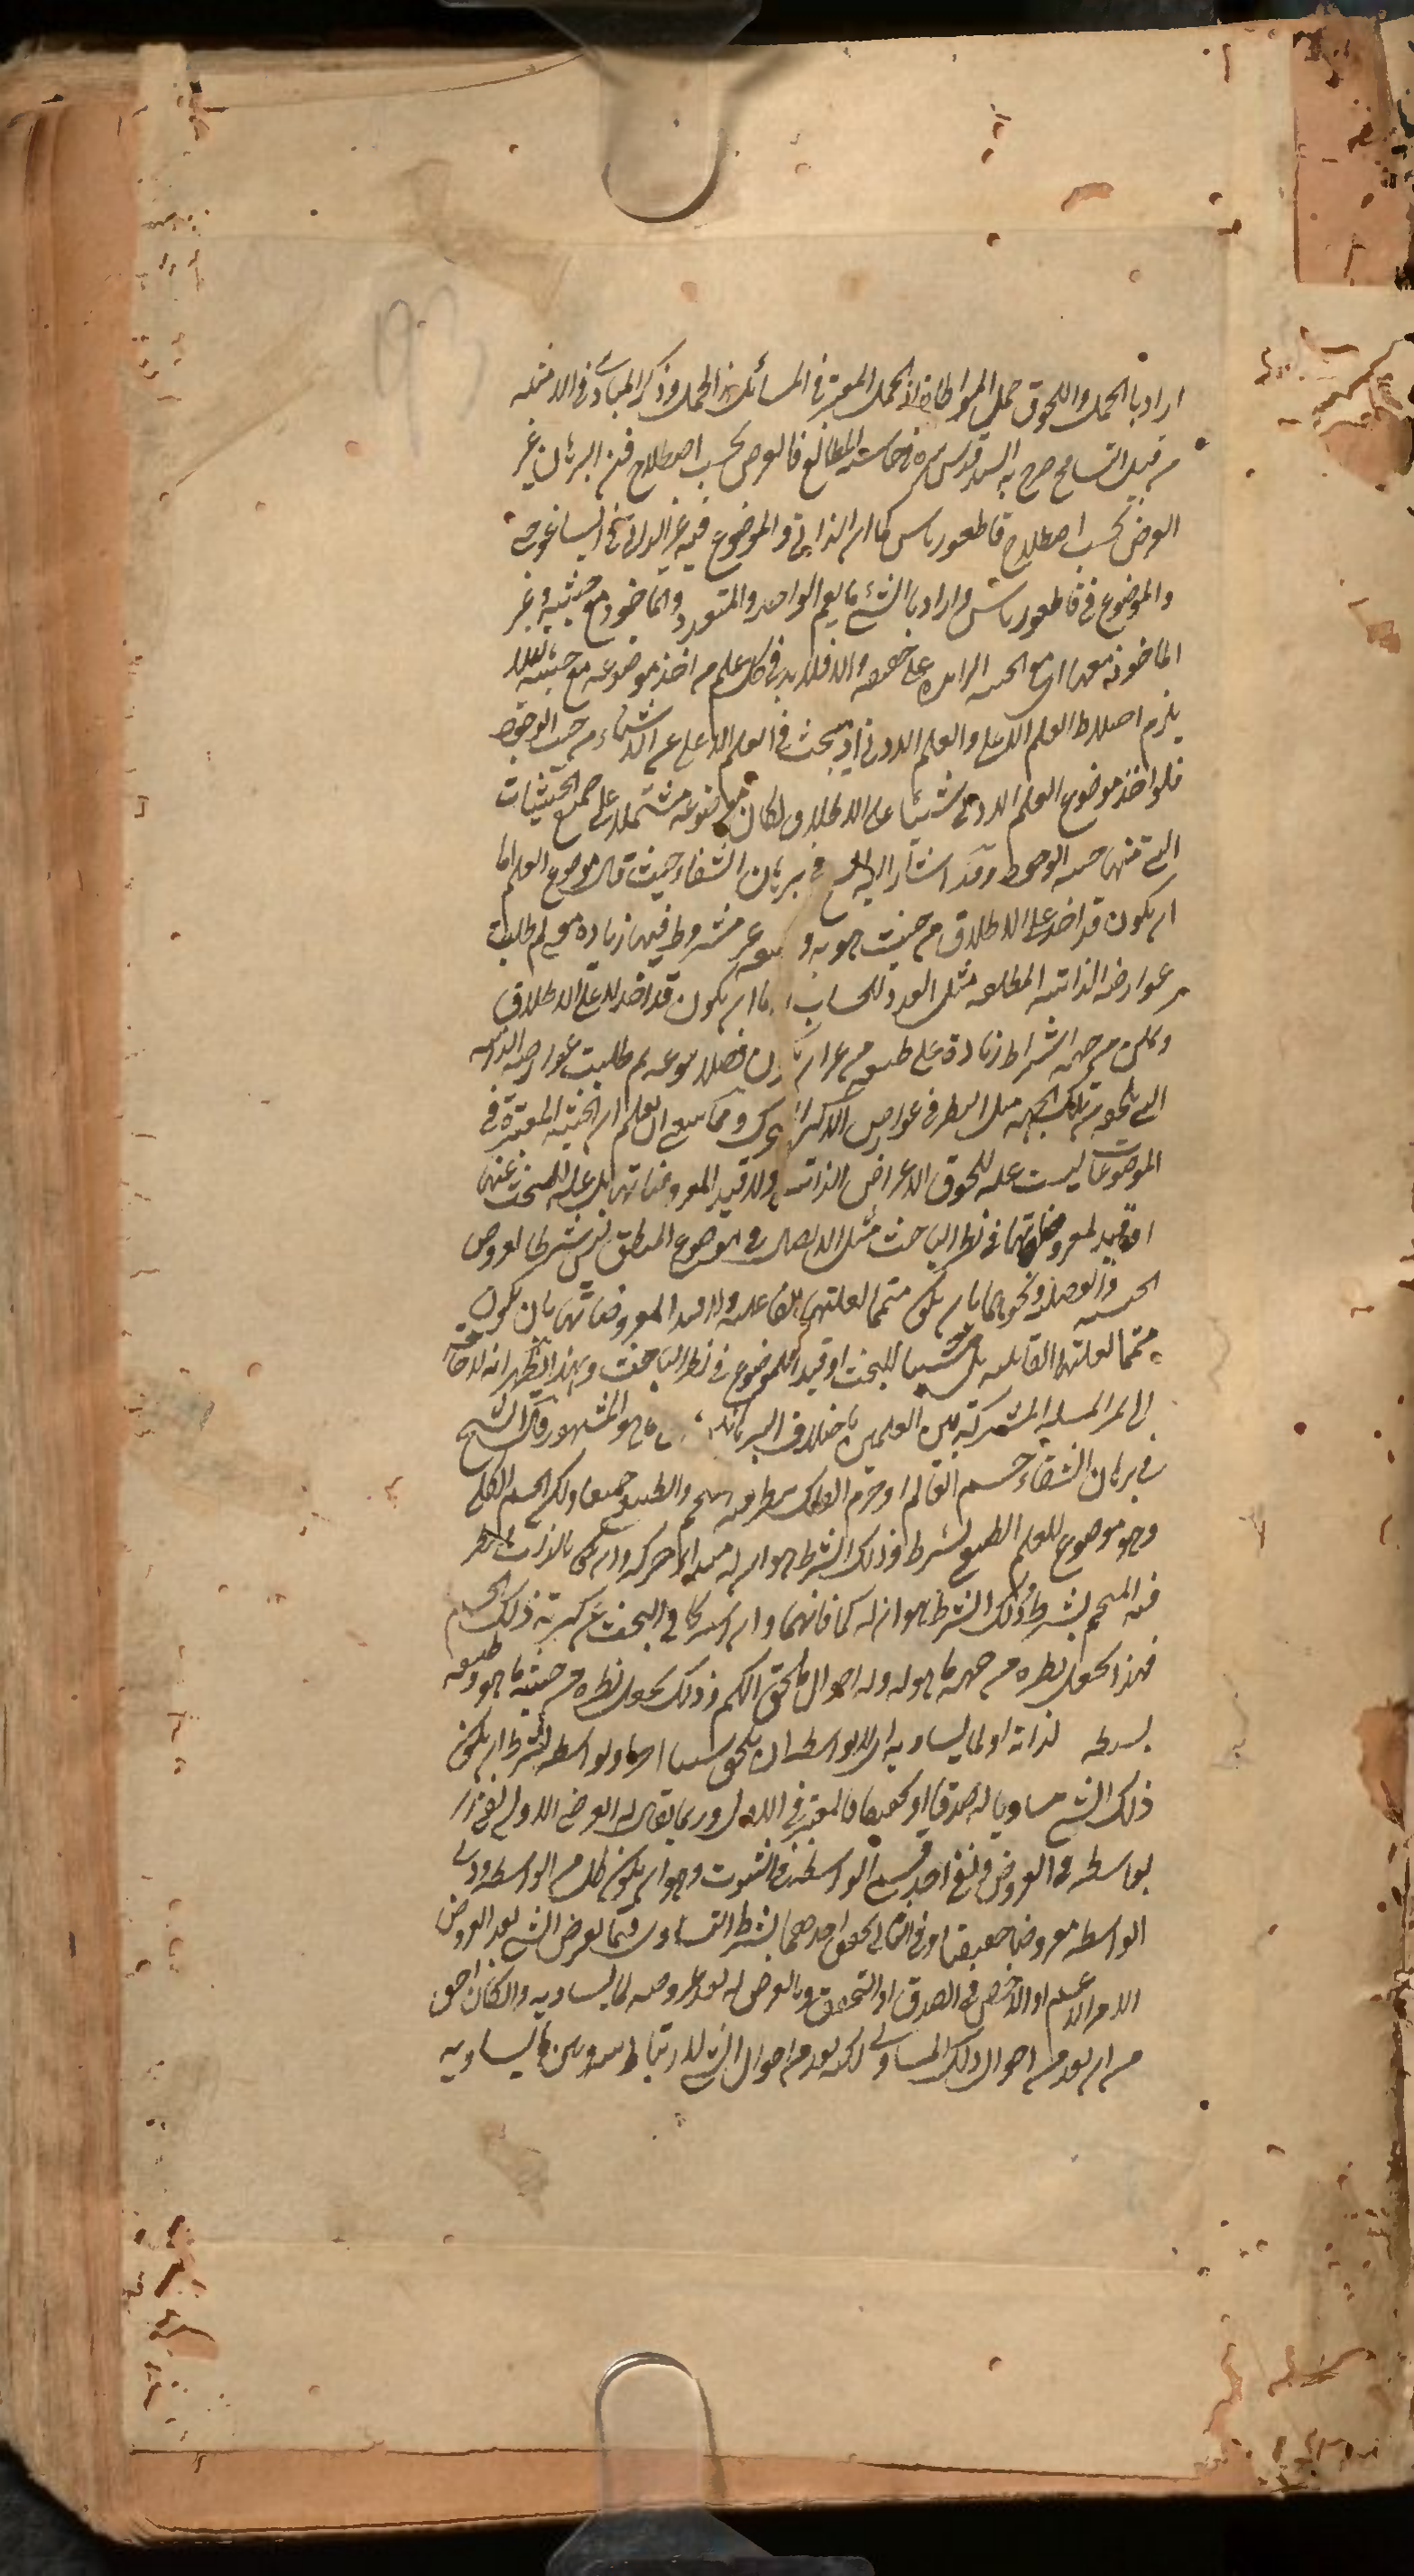 اراد بالحمل واللحوق حمل المواطاة اذ الحمل المعتبر في المسائل هذا الحمل وذكر المبادي في الامثلة
من قبيل التسامح صرح به السيد قدس سره في حاشية المطالع فالعرض بحسب اصطلاح فن البرهان غير
العرض بحسب اصطلاح قاطيغورياس كما ان الذاتي والموضوع فيه غير الذاتي في ايساغوجي
والموضوع في قاطيغورياس واراد بالشئ ما يعم الواحد والمتعدد والماخوذ مع حيثية وغير
الماخوذ معها اي مع الحيثية الزايدة على حقيقته والا فلا بد في كل علم من اخذ موضوعه مع حيثية لئلا
يلزم اختلاط العلم الاعلى والعلم الادنى اذ يبحث في العلم الاعلى عن الاشياء من حيث الوجود
فلو اخذ موضوع العلم الادنى شيئا على الاطلاق لكان موضوعه مشتملا على جميع الحيثيات
التي منها حيثية الوجود وقد اشار اليه الشيخ في برهان الشفاء حيث قال موضوع العلم اما
ان يكون قد اخذ على الاطلاق من حيث هويته وطبيعته غير مشروط فيها زيادة معنى ثم طلبت
عوارضه الذاتية المطلقة مثل العدد للحساب واما ان يكون قد اخذ لا على الاطلاق
ولكن من جهة اشتراط زيادة على طبيعته من غير ان يكون فصلا ينوعه ثم طلبت عوارضه الذاتية
التي تلحقه من تلك الجهة مثل النظر في عوارض الاكر المتحركة ومما ينبغي ان يعلم ان الحيثية المعتبرة في
الموضوعات ليست علة للحوق الاعراض الذاتية ولا قيد المعروضاتها بل علة للبحث عنها
او قيد لمعروضاتها في نظر الباحث مثل الايصال في موضوع المنطق ليس شرطا لعروض
الجنسية والفصلية ونحوهما بان يكون متمما لعلتها الفاعلية ولا قيدا لمعروضاتها بان يكون
متمما لعلتها القابلية بل سببا للبحث او قيد الموضوع في نظر الباحث وبهذا يظهر انه لا حاجة
الى في المسئلة المشتركة بين العلمين باختلاف البرهان على ما هو المشهور قال الشيخ
في برهان الشفاء جسم العالم او جرم الفلك ينظر فيه المنجم والطبيعي جميعا ولكن الجسم الكلي
وهو موضوع للعلم الطبيعي بشرط وذلك الشرط هو ان له مبدا حركة وسكون بالذات وينظر
فيه المنجم بشرط وذلك الشرط هو ان له كما فانهما وان اشتركا في البحث عن كرية ذلك الجسم
فهذا يجعل نظره من جهة ما هو له وله احوال تلحق الكم وذلك يجعل نظره من حيث ما هو ذو طبيعة
بسيطة لذاته او لما يساويه اي بلا واسطة ان تلحق شيئا اصلا او بواسطة بشرط ان يكون
ذلك الشئ مساويا له صدقا او تحققا فالمعتبر في الاول وربما يقال له العرض الاولي نفي
بواسطة في العروض ونفي احد قسمي الواسطة في الثبوت وهو ان يكون كل من الواسطة وذي
الواسطة معروضا حقيقة وفي الثاني تحقق احدهما بشرط التساوي فما يعرض الشئ بعد العروض
الامر الاعم او الاخص في الصدق او التحقق وما يعرض له بعد عروضه لما يساويه وان كان احق
من ان يعد من احوال ذلك المساوي لكنه يعد من احوال الشئ للارتباط بينه وبين ما يساويه